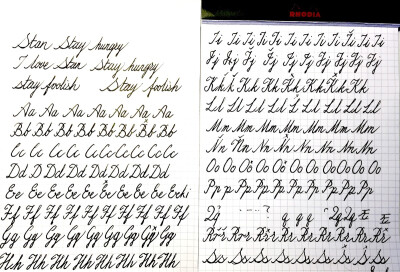 Stan Stay hungry
I love Stan Stay hungry
stay foolish Stay foolish
Aa Aa Aa Aa Aa Aa Aa
Bb Bb Bb Bb Bb Bb Bb
Cc Cc Cc Cc Cc Cc Cc
Dd Dd Dd Dd Dd Dd Dd
Ee Ee Ee Ee Ee Ee Ee Ee
Ff Ff Ff Ff Ff Ff Ff Ff
Gg Gg Gg Gg Gg Gg Gg
Hh Hh Hh Hh Hh Hh Hh
RHODIA
Ii Ii Ii Ii Ii Ii Ii Ii Ii Ii
Jj Jj Jj Jj Jj Jj Jj Jj Jj
Kk Kk Kk Kk Kk Kk Kk Kk
Ll Ll Ll Ll Ll Ll Ll Ll Ll
Mm Mm Mm Mm Mm Mm Mm
Nn Nn Nn Nn Nn Nn Nn Nn
Oo Oo Oo Oo Oo Oo Oo Oo Oo
Pp Pp Pp Pp Pp Pp Pp Pp
Qq ? q q q Qq Qq
Rr Rr Rr Rr Rr Rr Rr Rr
Ss Ss Ss Ss Ss Ss Ss Ss